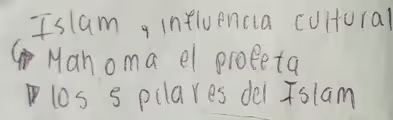 Islam, influencia cultural
Mahoma el profeta
los 5 pilares del Islam